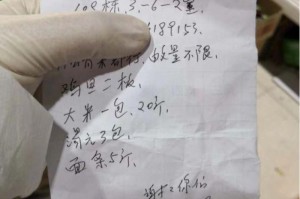 108栋,3-6-2室,
189153
数量不限,
鸡旦二板,
大米一包,20斤,
汤元3包,
面条5斤,
谢谢你们